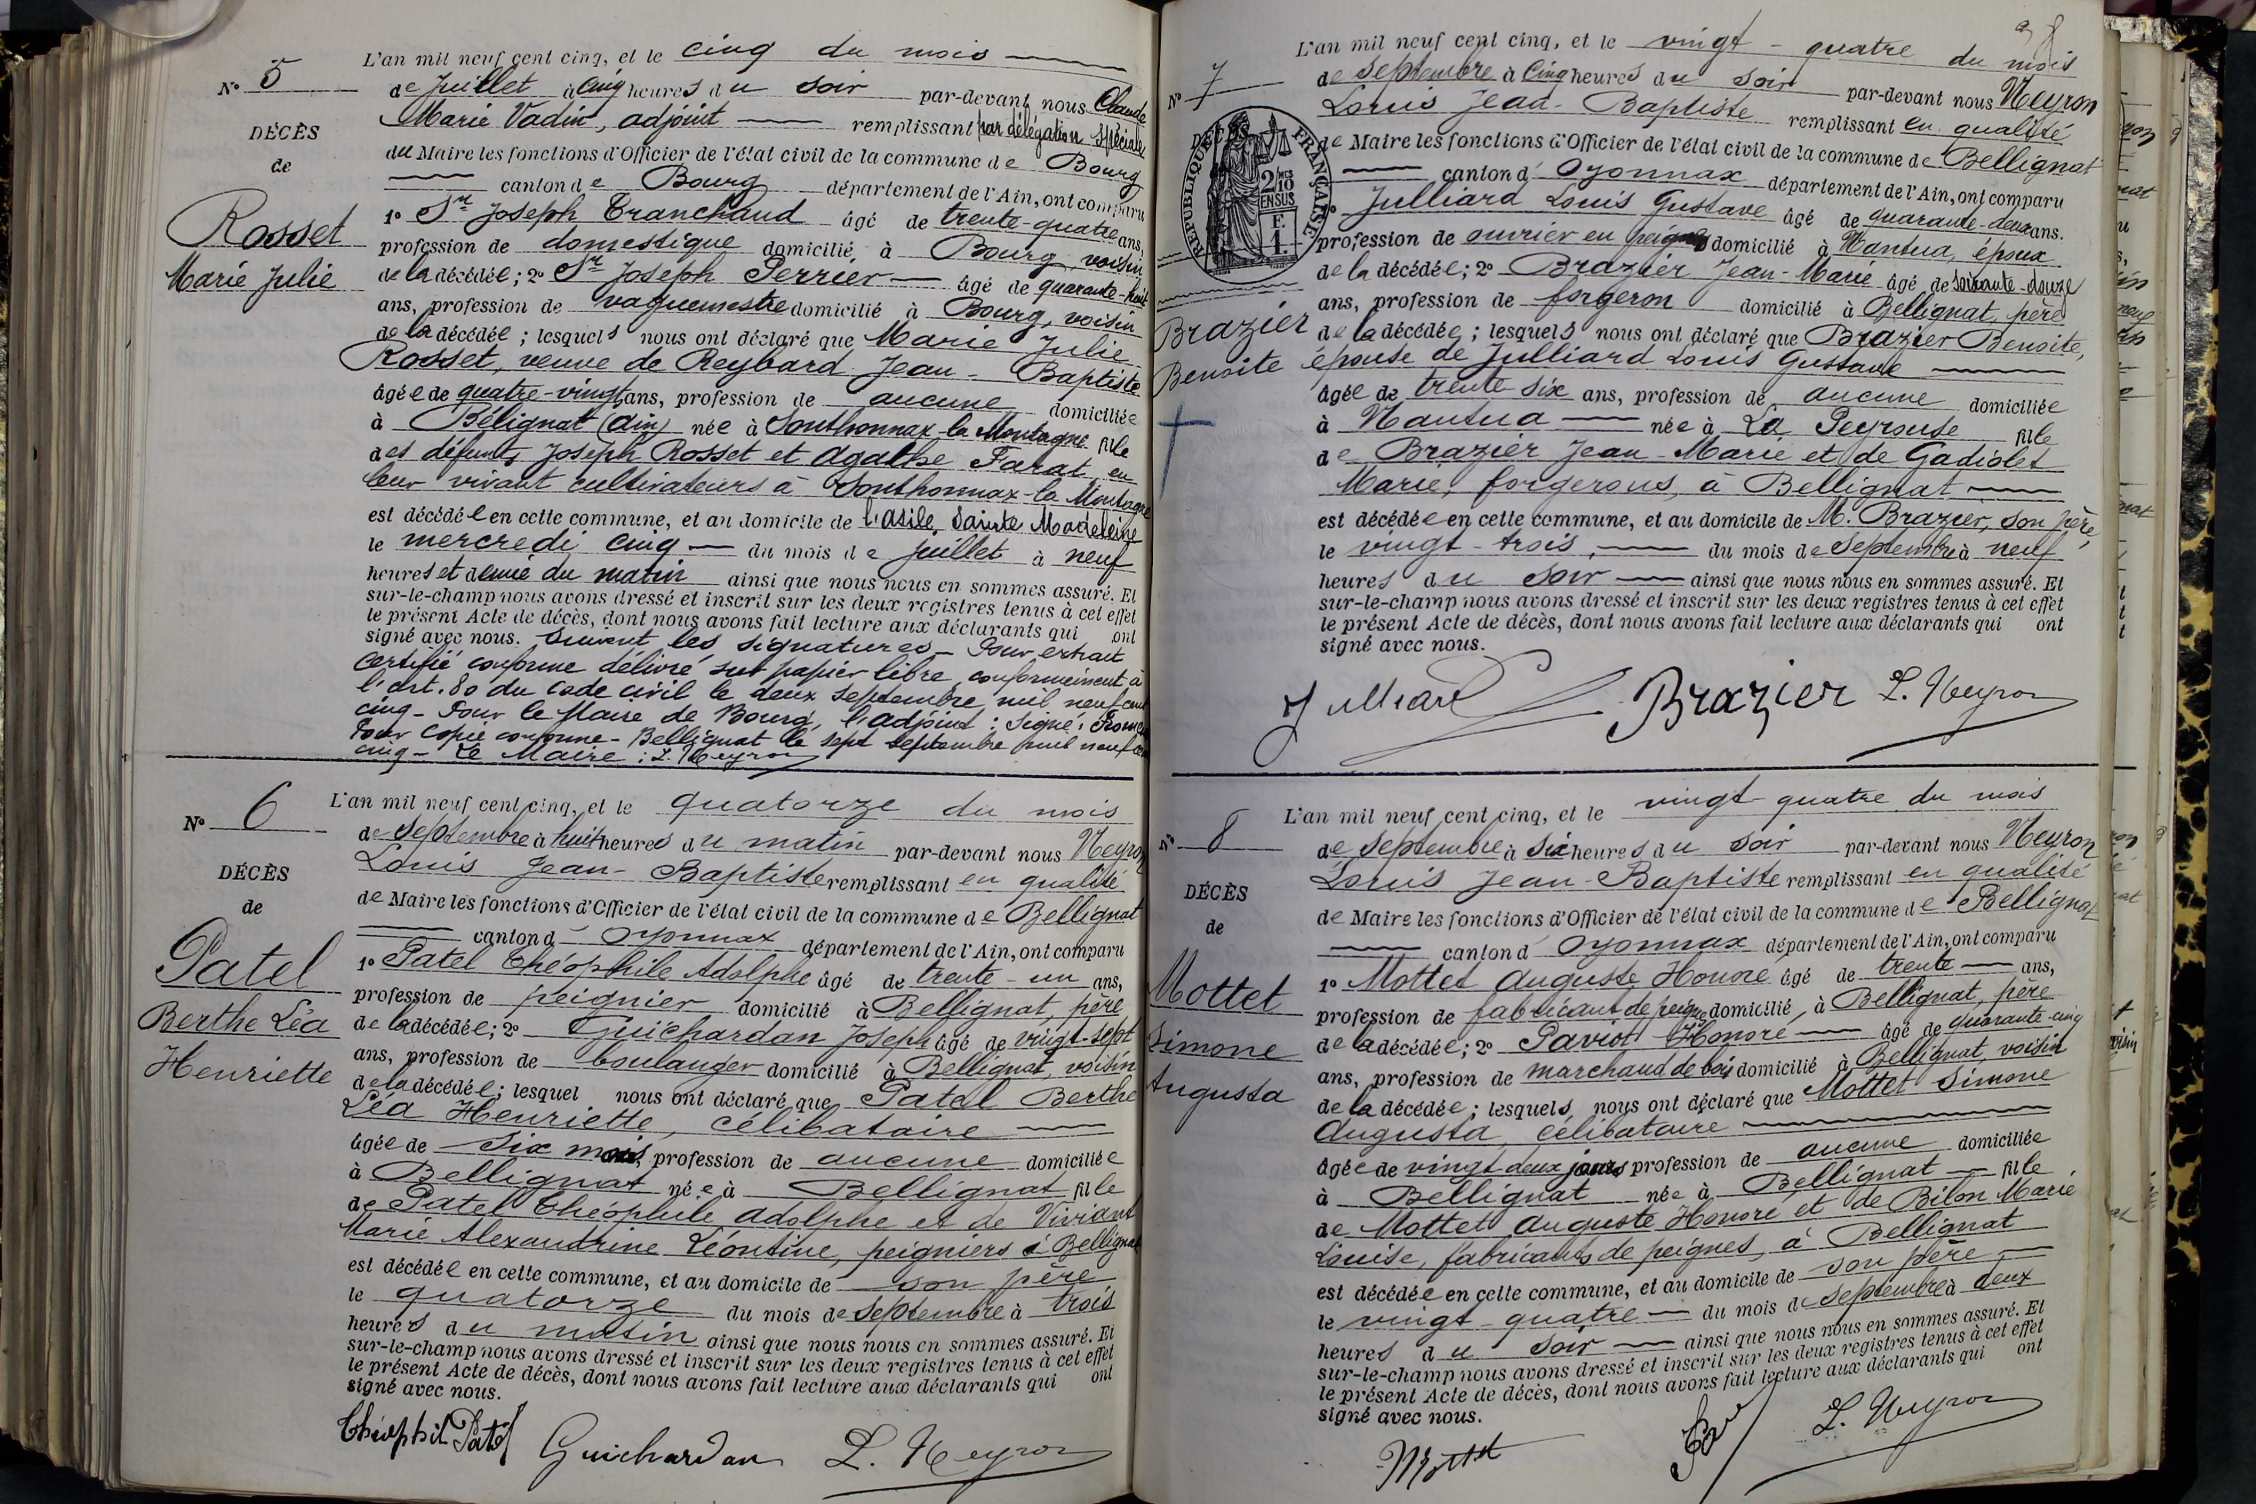 L'an mil neuf cent cinq, et le cinq du mois
N° 5
de Juillet à cinq heures du soir par-devant nous Claude
Marie Vadin, adjoint remplissant par délégation spéciale
DÉCÈS
du Maire les fonctions d'Officier de l'état civil de la commune de Bourg
de
canton de Bourg département de l'Ain, ont comparu
Rosset
1° Sr Joseph Tranchand âgé de trente-quatre ans,
profession de domestique domicilié à Bourg, voisin
Marie Julie
de la décédée; 2° Sr Joseph Perrier âgé de quarante-huit
ans, profession de vaguemestre domicilié à Bourg, voisin
de la décédée; lesquels nous ont déclaré que Marie Julie
Rosset, veuve de Reybard Jean-Baptiste
âgée de quatre-vingt ans, profession de aucune domiciliée
à Bélignat (Ain) née à Sonthonnax-la-Montagne fille
des défunts Joseph Rosset et Agathe Farat, en
leur vivant cultivateurs à Sonthonnax-la-Montagne
est décédée en cette commune, et au domicile de l'asile Sainte Madeleine
le mercredi cinq du mois de juillet à neuf
heures et demie du matin ainsi que nous nous en sommes assuré. Et
sur-le-champ nous avons dressé et inscrit sur les deux registres tenus à cet effet
le présent Acte de décès, dont nous avons fait lecture aux déclarants qui ont
signé avec nous. Suivent les signatures – Pour extrait
certifié conforme délivré sur papier libre, conformément à
l'art. 80 du Code civil le deux septembre mil neuf cent
cinq – Pour le Maire de Bourg, l'adjoint : Signé :
Pour copie conforme – Bellignat le sept septembre mil neuf cent
cinq – Le Maire : L. Neyron
N° 6
L'an mil neuf cent cinq, et le quatorze du mois
de septembre à huit heures du matin par-devant nous Neyron
Louis Jean-Baptiste remplissant en qualité
DÉCÈS
de Maire les fonctions d'Officier de l'état civil de la commune de Bellignat
de
canton d'Oyonnax département de l'Ain, ont comparu
Patel
1° Patel Théophile Adolphe âgé de trente-un ans,
profession de peignier domicilié à Bellignat, père
Berthe Léa
de la décédée; 2° Guichardan Joseph âgé de vingt-sept
Henriette
ans, profession de boulanger domicilié à Bellignat, voisin
de la décédée; lesquel nous ont déclaré que Patel Berthe
Léa Henriette, célibataire
âgée de six mois, profession de aucune domiciliée
à Bellignat née à Bellignat fille
de Patel Théophile Adolphe et de Viviant
Marie Alexandrine Léontine, peigniers à Bellignat
est décédée en cette commune, et au domicile de son père
le quatorze du mois de septembre à trois
heures du matin ainsi que nous nous en sommes assuré. Et
sur-le-champ nous avons dressé et inscrit sur les deux registres tenus à cet effet
le présent Acte de décès, dont nous avons fait lecture aux déclarants qui ont
signé avec nous.
Théophile Patel Guichardan L. Neyron
L'an mil neuf cent cinq, et le vingt-quatre du mois
N° 7
de septembre à cinq heures du soir par-devant nous Neyron
Louis Jean-Baptiste remplissant en qualité
DÉCÈS
RÉPUBLIQUE FRANÇAISE
2/10 EN SUS
F 1
de Maire les fonctions d'Officier de l'état civil de la commune de Bellignat
canton d'Oyonnax département de l'Ain, ont comparu
1° Julliard Louis Gustave âgé de quarante-deux ans,
profession de ouvrier en peignes domicilié à Nantua, époux
de la décédée; 2° Brazier Jean-Marie âgé de soixante-douze
ans, profession de forgeron domicilié à Bellignat, père
Brazier
de la décédée; lesquels nous ont déclaré que Brazier Benoite,
Benoite
épouse de Julliard Louis Gustave
âgée de trente-six ans, profession de aucune domiciliée
à Nantua née à La Peyrouse fille
de Brazier Jean-Marie et de Gadiolet
Marie, forgerons, à Bellignat
est décédée en cette commune, et au domicile de M. Brazier, son père,
le vingt-trois, du mois de septembre à neuf
heures du soir ainsi que nous nous en sommes assuré. Et
sur-le-champ nous avons dressé et inscrit sur les deux registres tenus à cet effet
le présent Acte de décès, dont nous avons fait lecture aux déclarants qui ont
signé avec nous.
Julliard Brazier L. Neyron
L'an mil neuf cent cinq, et le vingt-quatre du mois
N° 8
de septembre à six heures du soir par-devant nous Neyron
Louis Jean-Baptiste remplissant en qualité
DÉCÈS
de Maire les fonctions d'Officier de l'état civil de la commune de Bellignat
de
canton d'Oyonnax département de l'Ain, ont comparu
Mottet
1° Mottet Auguste Honoré âgé de trente ans,
profession de fabricant de peignes domicilié à Bellignat, père
Simone
de la décédée; 2° Paviot Honoré âgé de quarante-cinq
ans, profession de marchand de bois domicilié à Bellignat, voisin
Augusta
de la décédée; lesquels nous ont déclaré que Mottet Simone
Augusta, célibataire
âgée de vingt deux jours, profession de aucune domiciliée
à Bellignat née à Bellignat fille
de Mottet Auguste Honoré et de Bilon Marie
Louise, fabricants de peignes, à Bellignat
est décédée en cette commune, et au domicile de son père
le vingt-quatre du mois de septembre à deux
heures du soir ainsi que nous nous en sommes assuré. Et
sur-le-champ nous avons dressé et inscrit sur les deux registres tenus à cet effet
le présent Acte de décès, dont nous avons fait lecture aux déclarants qui ont
signé avec nous.
Mottet L. Neyron